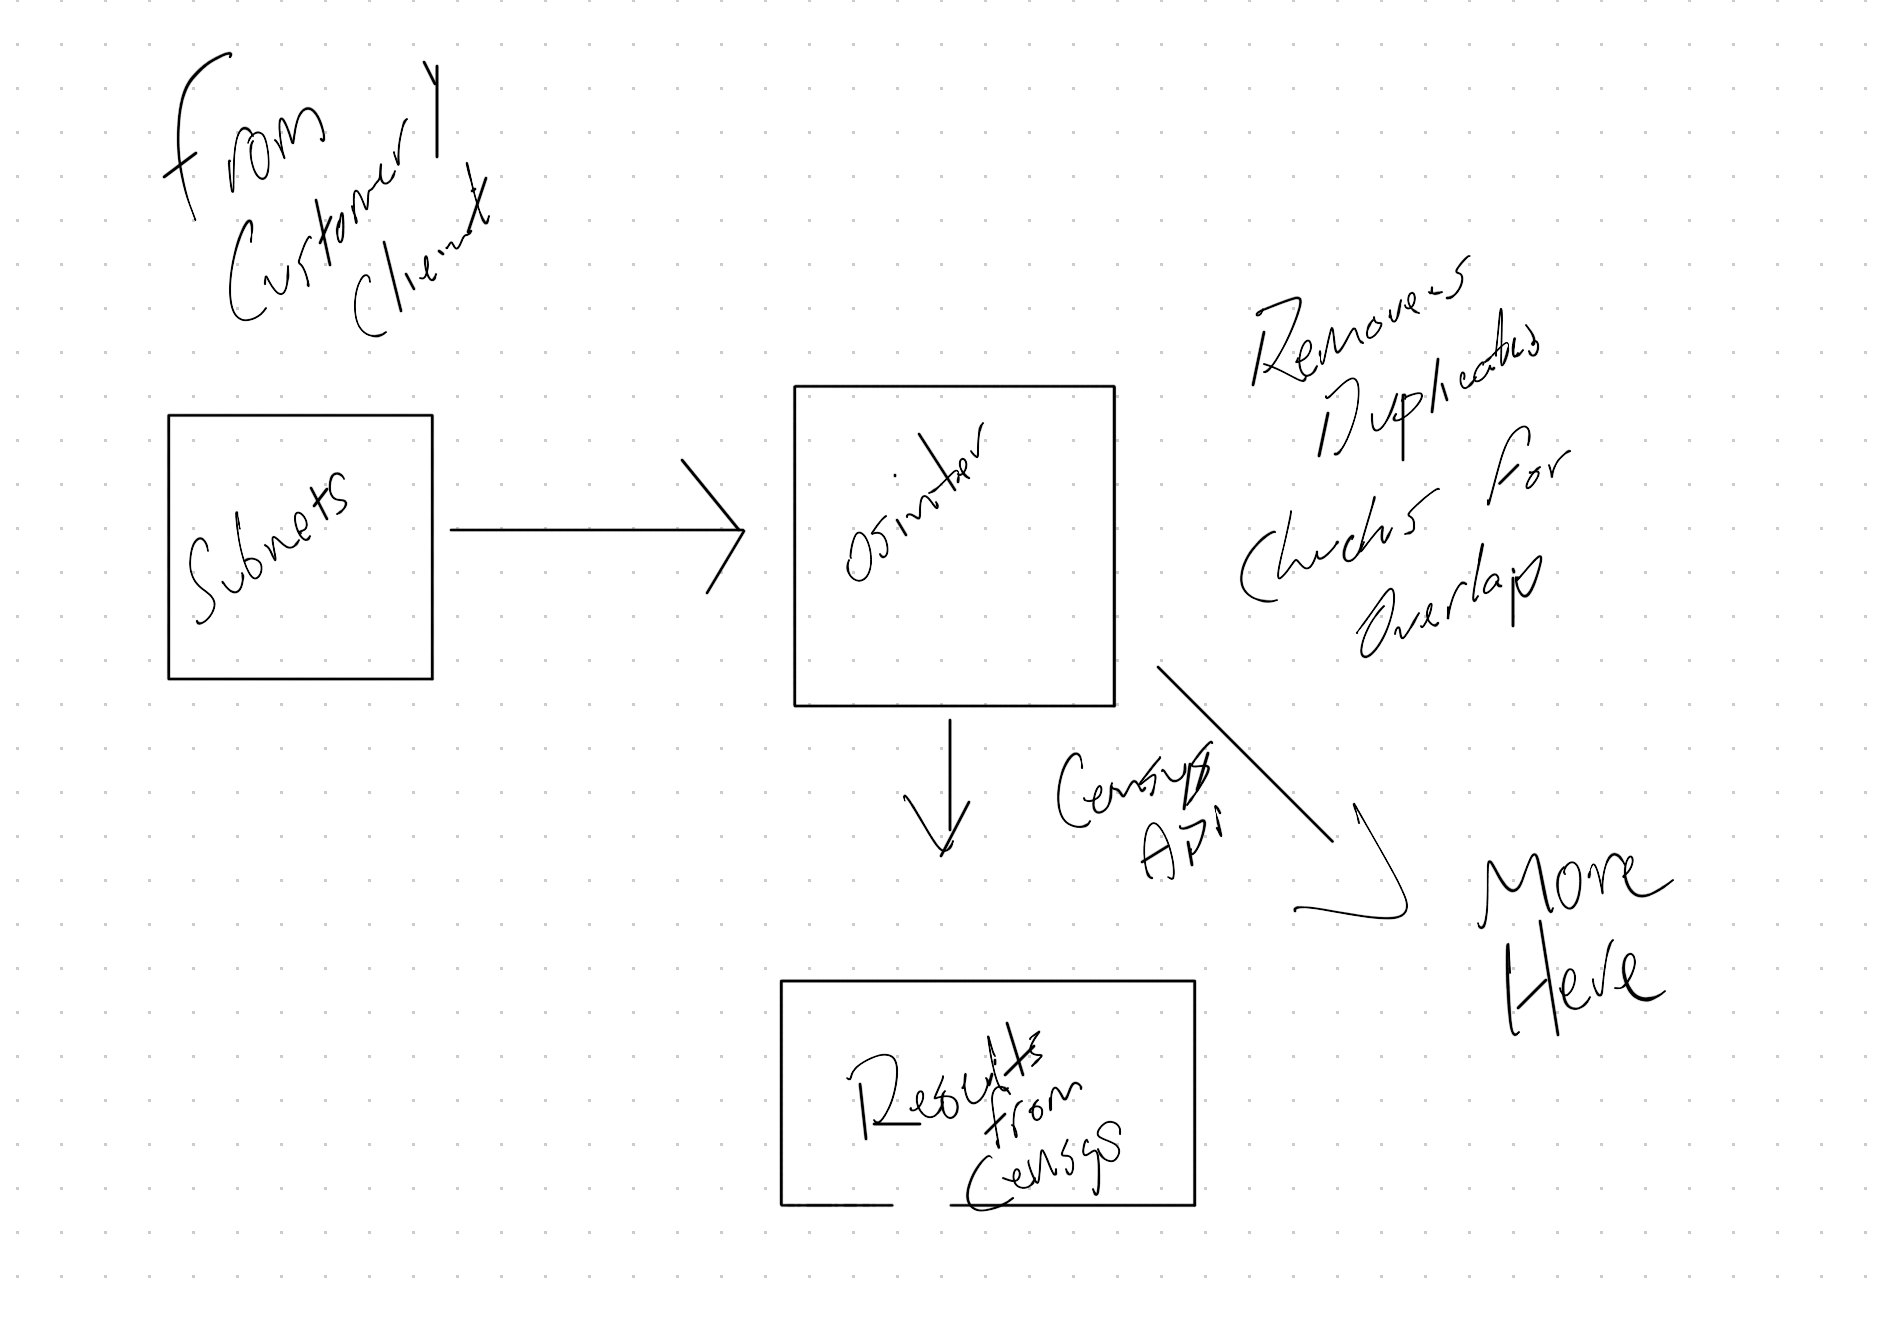 From
Customer /
Client
Subnets
Osinter
Removes
Duplicates
Checks for
Overlap
Censys
API
More
Here
Results
from
Censys